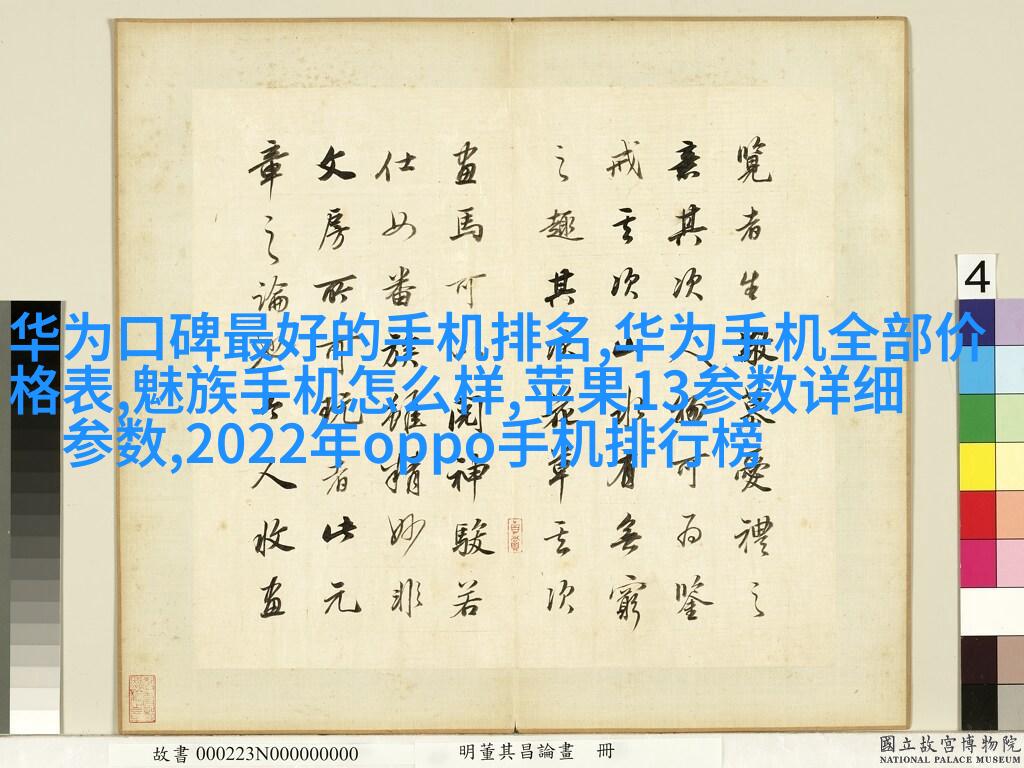 华为口碑最好的手机排名,华为手机全部价
格表,魅族手机怎么样,苹果13参数详细
参数,2022年oppo手机排行榜
覽者生敬慕愛禮之
意其次人物可為鑒
戒其次山水有無窮
之趣其次花草其次
畫馬可閱神駿若
仕女番族雖精妙非
文房所可玩者此元
章之論今人收畫
4
故書 000223N000000000
明董其昌論畫 冊
國立故宮博物院
NATIONAL PALACE MUSEUM